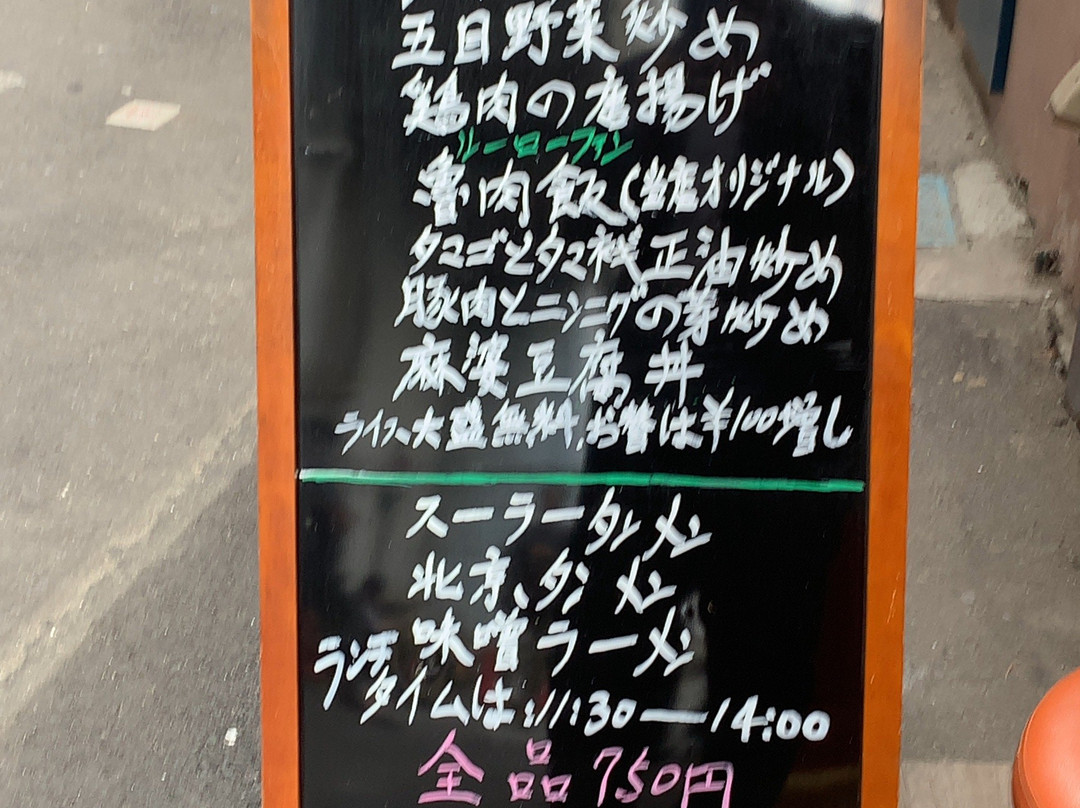 五目野菜炒め
鶏肉の唐揚げ
ルーローファン
魯肉飯(当店オリジナル)
タマゴとタマネギ正油炒め
豚肉とニンニクの芽炒め
麻婆豆腐丼
ライス大盛無料、お替は¥100増し
スーラータンメン
北京、タンメン
味噌ラーメン
ランチタイムは:11:30—14:00
全品750円